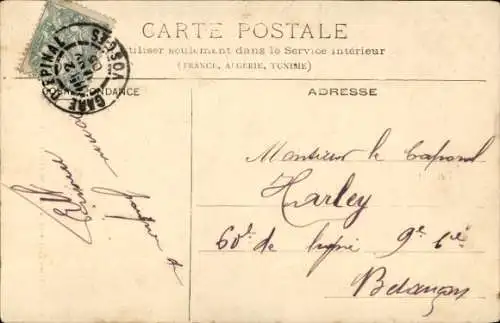 CARTE POSTALE
utiliser seulement dans le Service intérieur
(FRANCE, ALGERIE, TUNISIE)
CORRESPONDANCE
ADRESSE
GARE D'EPINAL
VOSGES
Monsieur le Caporal
Harley
60e de ligne 9e Cie
Besançon